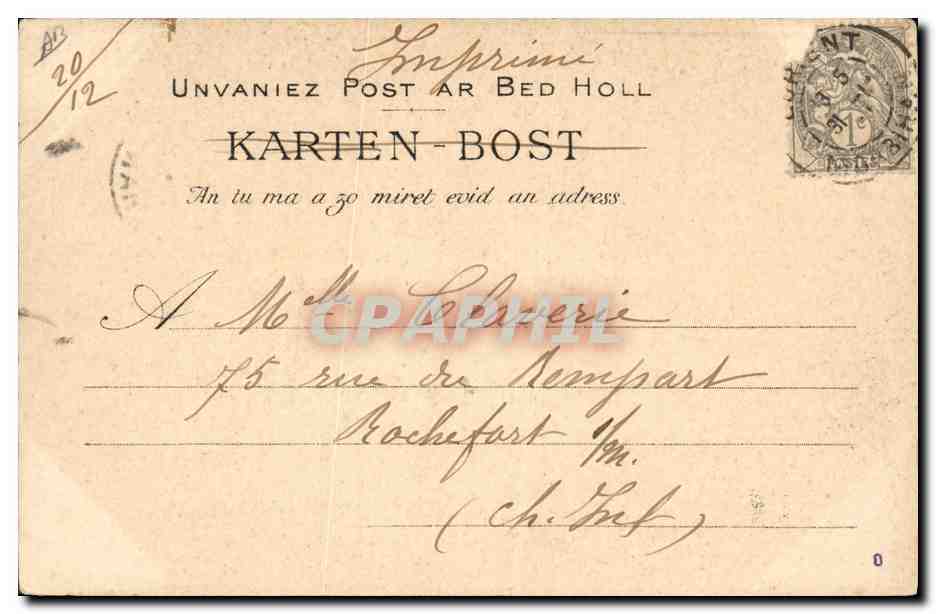 AB
20/12
Imprimé
UNVANIEZ POST AR BED HOLL
KARTEN-BOST
An tu ma a zo miret evid an adress.
1c
POSTES
A Mlle Claverie
CPAPHIL
75 rue du Rempart
Rochefort s/m.
(Ch. Inf)
0